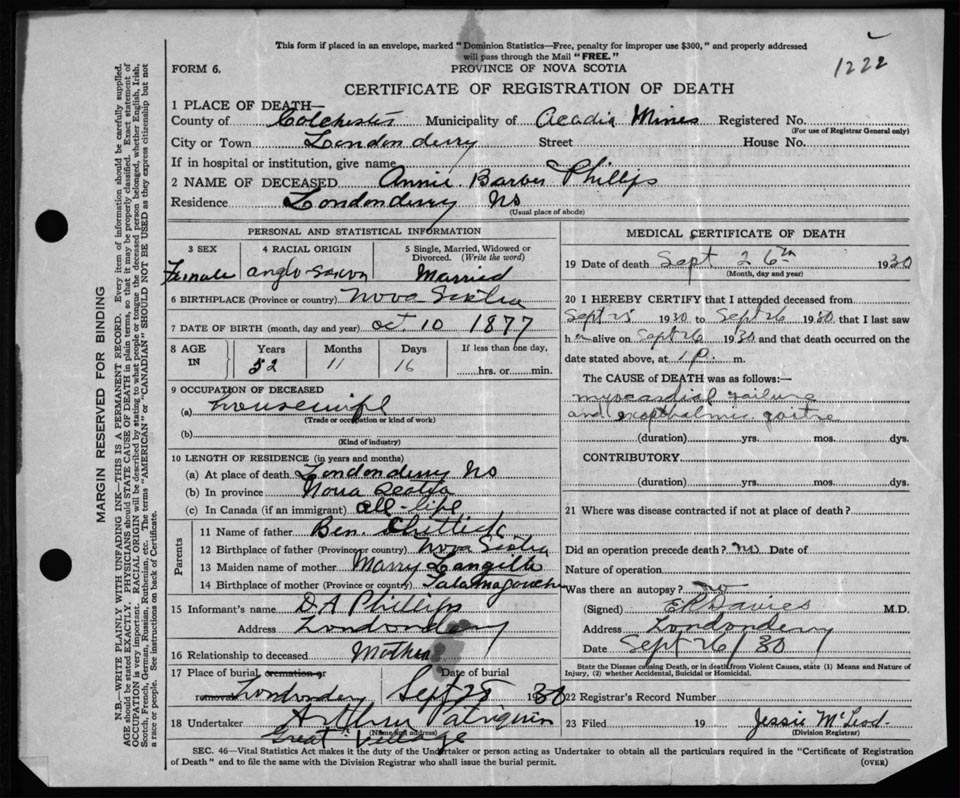 This form if placed in an envelope, marked "Dominion Statistics—Free, penalty for improper use $300," and properly addressed
will pass through the Mail "FREE."
1222
FORM 6.
PROVINCE OF NOVA SCOTIA
CERTIFICATE OF REGISTRATION OF DEATH
1 PLACE OF DEATH—
County of Colchester Municipality of Acadia Mines Registered No.
(For use of Registrar General only)
City or Town Londonderry Street House No.
If in hospital or institution, give name
2 NAME OF DECEASED Annie Barber Phillips
Residence Londonderry NS
(Usual place of abode)
PERSONAL AND STATISTICAL INFORMATION
3 SEX 4 RACIAL ORIGIN 5 Single, Married, Widowed or Divorced. (Write the word)
Female anglo-saxon Married
6 BIRTHPLACE (Province or country) Nova Scotia
7 DATE OF BIRTH (month, day and year) Oct 10 1877
8 AGE IN Years Months Days If less than one day,
52 11 16 hrs. or min.
9 OCCUPATION OF DECEASED
(a) housewife
(Trade or occupation or kind of work)
(b)
(Kind of industry)
10 LENGTH OF RESIDENCE (in years and months)
(a) At place of death Londonderry NS
(b) In province Nova Scotia
(c) In Canada (if an immigrant) all-life
Parents
11 Name of father Ben.
12 Birthplace of father (Province or country) Nova Scotia
13 Maiden name of mother Marry Langille
14 Birthplace of mother (Province or country)
15 Informant's name D.A Phillips
Address Londonderry
16 Relationship to deceased Mother
17 Place of burial, cremation or removal Londondery Date of burial Sept 28 1930
18 Undertaker Arthur Patriquin
(Name and address)
Great Village
MEDICAL CERTIFICATE OF DEATH
19 Date of death Sept 26th 1930
(Month, day and year)
20 I HEREBY CERTIFY that I attended deceased from
Sept 25 1930 to Sept 26 1930 that I last saw
her alive on Sept 26 1930 and that death occurred on the
date stated above, at 1 p. m.
The CAUSE OF DEATH was as follows:—
myocardial failure
and exopthalmic goitre
(duration) yrs. mos. dys.
CONTRIBUTORY
(duration) yrs. mos. dys.
21 Where was disease contracted if not at place of death?
Did an operation precede death? no Date of
Nature of operation
Was there an autopsy? no
(Signed) E R Davies M.D.
Address Londonderry
Date Sept 26/30
State the Disease causing Death, or in death from Violent Causes, state (1) Means and Nature of
Injury, (2) whether Accidental, Suicidal or Homicidal.
22 Registrar's Record Number
23 Filed 19 Jessie McLeod.
(Division Registrar)
SEC. 46—Vital Statistics Act makes it the duty of the Undertaker or person acting as Undertaker to obtain all the particulars required in the "Certificate of Registration
of Death" and to file the same with the Division Registrar who shall issue the burial permit.
(OVER)
MARGIN RESERVED FOR BINDING
N.B.—WRITE PLAINLY WITH UNFADING INK—THIS IS A PERMANENT RECORD. Every item of information should be carefully supplied.
AGE should be stated EXACTLY. PHYSICIANS should STATE CAUSE OF DEATH in plain terms, so that it may be properly classified. Exact statement of
OCCUPATION is very important. RACIAL ORIGIN will be described by stating to what people or tongue the deceased person belonged, whether English, Irish,
Scotch, French, German, Russian, Ruthenian, etc. The terms "AMERICAN" or "CANADIAN" SHOULD NOT BE USED as they express citizenship but not
a race or people. See instructions on back of Certificate.